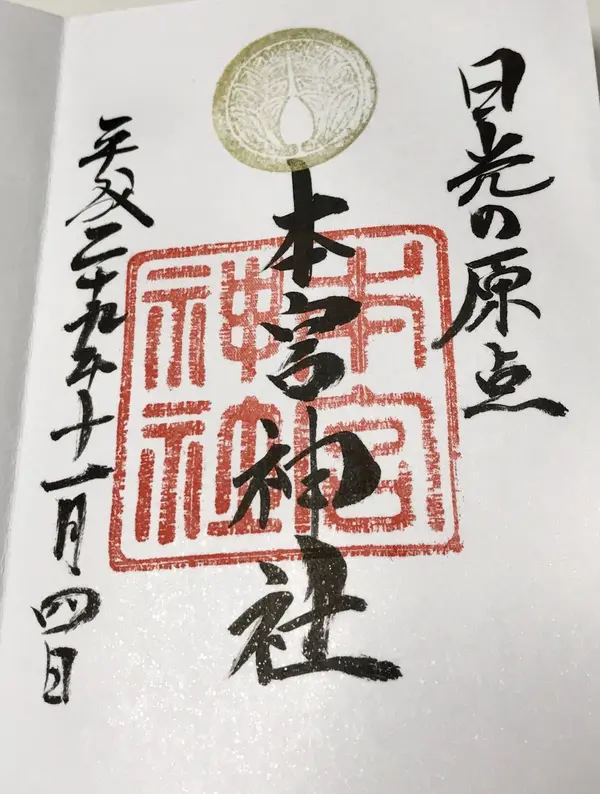 日光の原点
本宮神社
本宮
神社
平成二十九年十一月四日